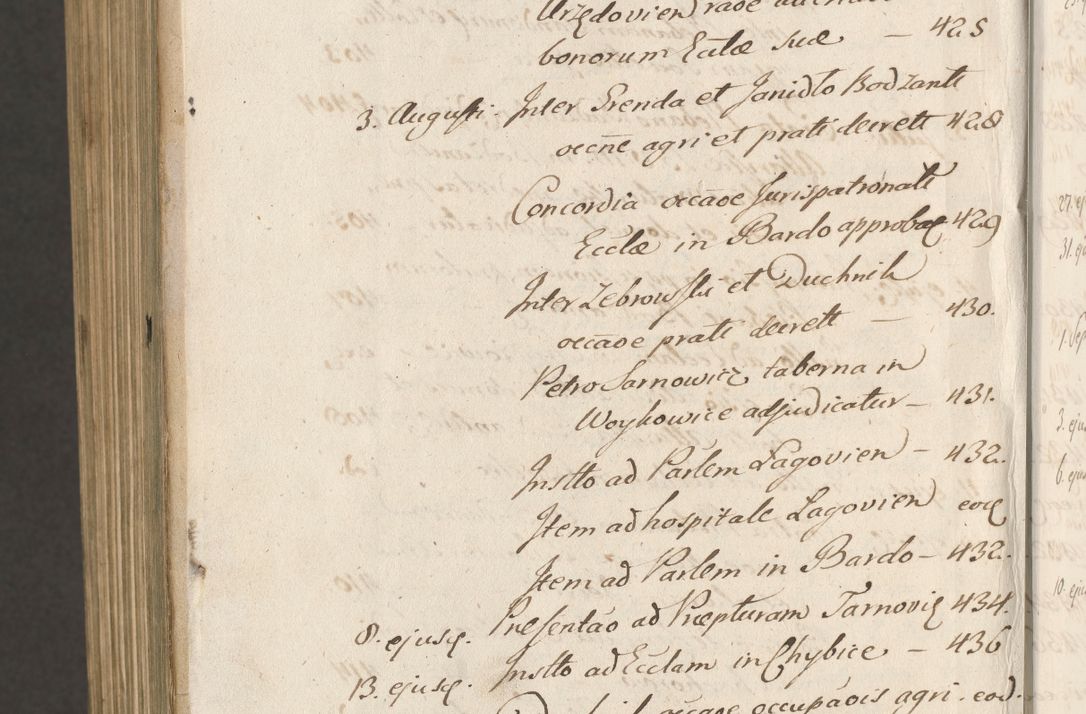 Urzędovien) raõe
bonorum Ecclæ suæ — 425
3. Augusti. Inter Srenda et Janidło Bodzanti
occne agri et prati decrett 428
Concordia occaõe Jurispatronatt
Ecclæ in Bardo approbaę 429
Inter Zebrowski et Duchnik
occaõe prati decrett — 430.
Petro Sarnowicz taberna in
Woykowice adjudicatur — 431.
Instto ad Parlem Lagovien) — 432.
Item ad hospitale Lagovien) eoę
Item ad Parlem in Bardo — 432.
8. ejusę. Præsentáo ad Præpturam Tarnovię 434.
13. ejusę. Instto ad Ecclam in Chybice — 436
occaõe occupáois agri. eod.